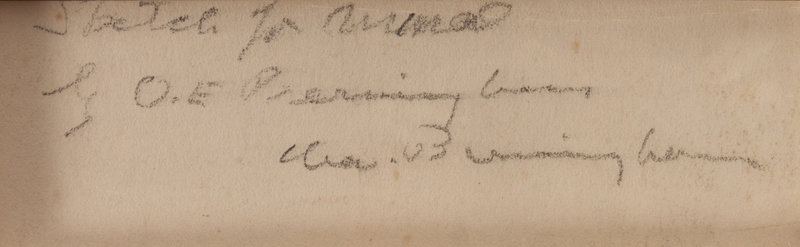 Sketch for Mural
by O.E Berninghaus
Chas. Berninghaus